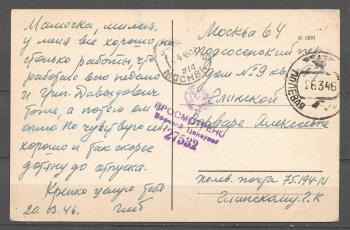 Мамочка, милая,
у меня всё хорошо, но
столько работы, что
работаю всю неделю
и Григ. Давыдович
тоже, а потом ем
Но чувствую
хорошо и так скорее
дотяну до отпуска.
Крепко целую тебя
20.03.46.
Москва 64
Подсосенский пер
дом № 9 кв.
Глинской
Варваре Алексеевне
полев. почта 75194-И
Глинскому Г. К
МОСКВА
ПРОСМОТРЕНО
Военной Цензурой
27532
26346